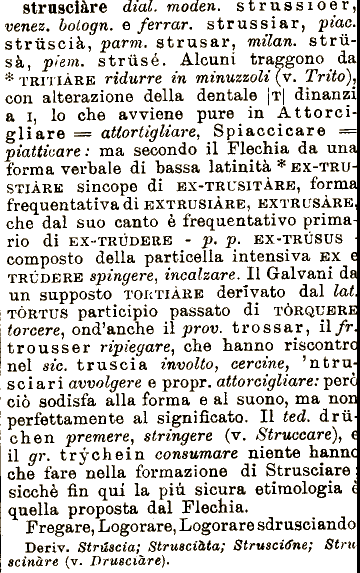 strusciàre dial. moden. strussioer,
venez. bologn. e ferrar. strussiar, piac.
strüscià, parm. strusar, milan. strü-
sà, piem. strüsé. Alcuni traggono da
* TRITIÀRE ridurre in minuzzoli (v. Trito),
con alterazione della dentale |T| dinanzi
a I, lo che avviene pure in Attorci-
gliare = attortigliare, Spiaccicare =
piatticare: ma secondo il Flechia da una
forma verbale di bassa latinità * EX-TRU-
STIÀRE sincope di EX-TRUSITÀRE, forma
frequentativa di EXTRUSIÀRE, EXTRUSÀRE,
che dal suo canto è frequentativo prima-
rio di EX-TRÚDERE - p. p. EX-TRÚSUS
composto della particella intensiva EX e
TRÚDERE spingere, incalzare. Il Galvani da
un supposto TORTIÀRE derivato dal lat.
TÒRTUS participio passato di TÒRQUERE
torcere, ond'anche il prov. trossar, il fr.
trousser ripiegare, che hanno riscontro
nel sic. truscia involto, cercine, 'ntru-
sciari avvolgere e propr. attorcigliare: però
ciò sodisfa alla forma e al suono, ma non
perfettamente al significato. Il ted. drü-
chen premere, stringere (v. Struccare), e
il gr. trÿchein consumare niente hanno
che fare nella formazione di Strusciare:
sicchè fin quí la piú sicura etimologia è
quella proposta dal Flechia.
Fregare, Logorare, Logorare sdrusciando
Deriv. Strúscia; Strusciàta; Struscióne; Stru
scinàre (v. Drusciàre).